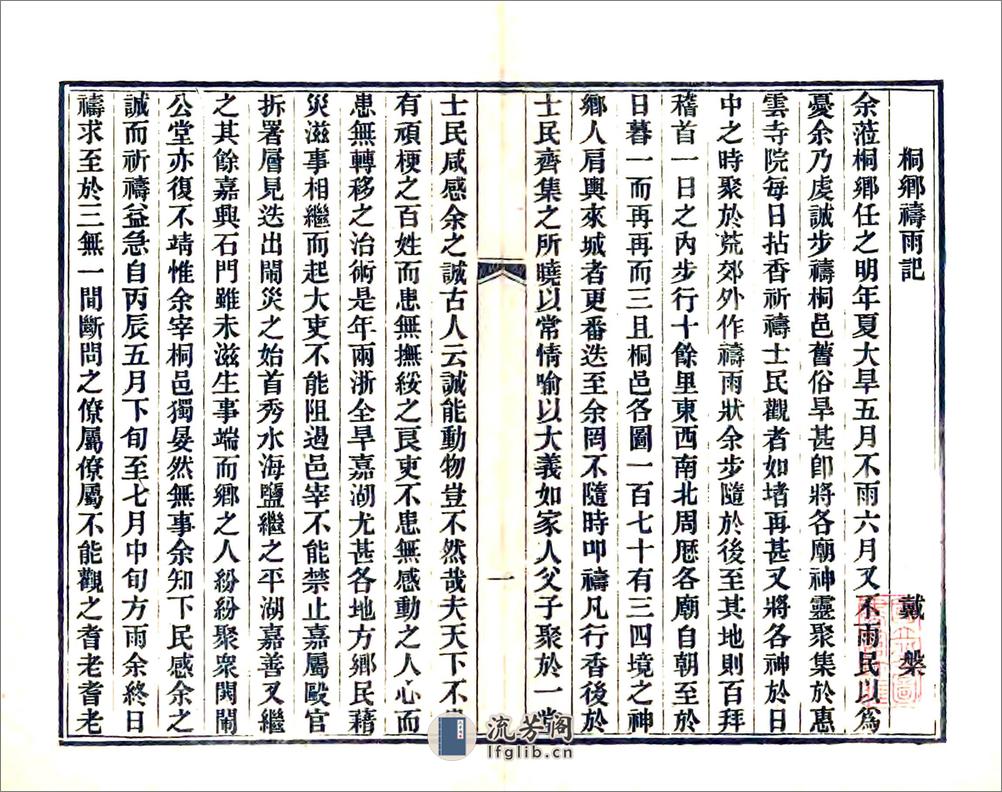 桐鄉禱雨記 戴槃
余蒞桐鄉任之明年夏大旱五月不雨六月又不雨民以爲
憂余乃虔誠步禱桐邑舊俗旱甚卽將各廟神靈聚集於惠
雲寺院每日拈香祈禱士民觀者如堵再甚又將各神於日
中之時聚於荒郊外作禱雨狀余步隨於後至其地則百拜
稽首一日之內步行十餘里東西南北周歷各廟自朝至於
日暮一而再再而三且桐邑各圖一百七十有三四境之神
鄉人肩輿來城者更番迭至余罔不隨時叩禱凡行香後於
士民齊集之所曉以常情喻以大義如家人父子聚於一堂
一
士民咸感余之誠古人云誠能動物豈不然哉夫天下不患
有頑梗之百姓而患無撫綏之良吏不患無感動之人心而
患無轉移之治術是年兩浙全旱嘉湖尤甚各地方鄉民藉
災滋事相繼而起大吏不能阻遏邑宰不能禁止嘉屬毆官
拆署層見迭出鬧災之始首秀水海鹽繼之平湖嘉善又繼
之其餘嘉興石門雖未滋生事端而鄉之人紛紛聚衆鬨鬧
公堂亦復不靖惟余宰桐邑獨晏然無事余知下民感余之
誠而祈禱益急自丙辰五月下旬至七月中旬方雨余終日
禱求至於三無一間斷問之僚屬僚屬不能觀之耆老耆老
流芳閣
lfglib.cn